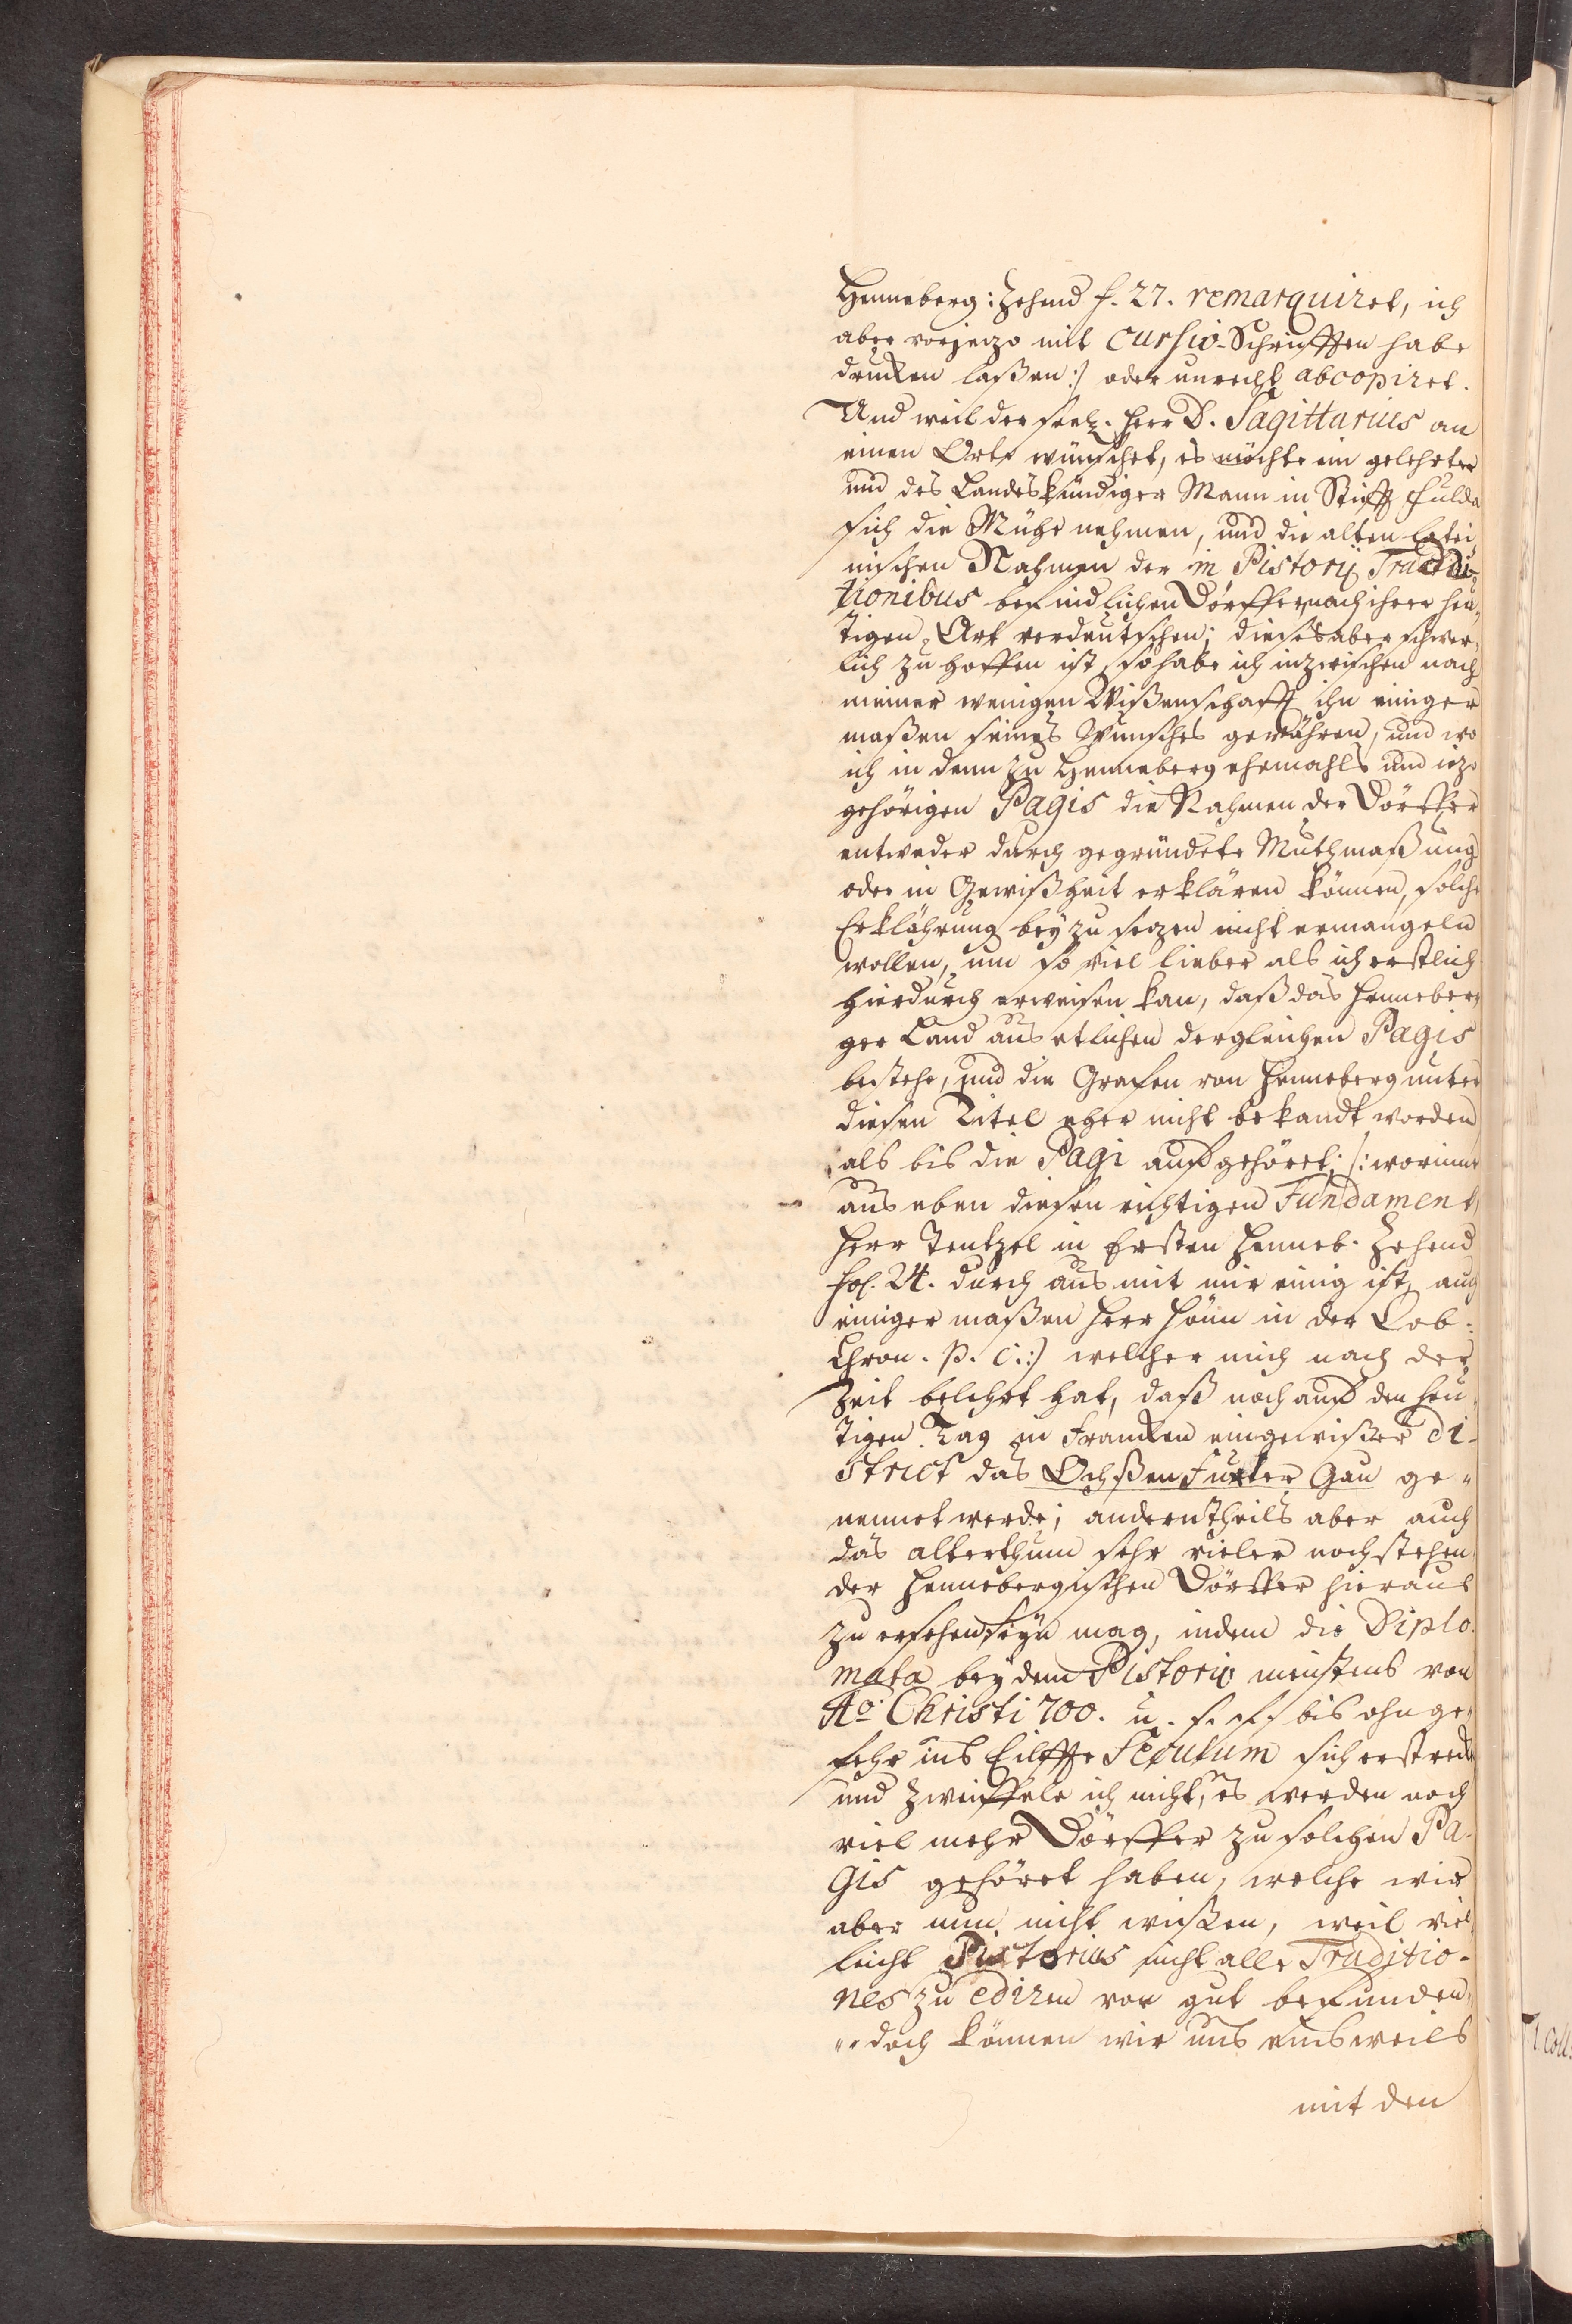 Henneberg: Zehend f. 27. remarquiret, ich
aber vorjezo mit Cursiv-Schrifften habe
drucken laßen:) oder unrecht abcopiret.
Und weil der seel. Herr D. Sagittarius an
einen Orte wünschet, es möchte ein gelehrter
und des Landes kündiger Mann in Stifft Fulda
sich die Mühe nehmen, und die alten latei,
nischen Nahmen der in Pistorij Traddi-
tionibus befindlichen Dörffer nach ihrer heu,
tigen Art verdeutschen; dieses aber schwer,
lich zu hoffen ist, so habe ich inzwischen nach
meiner wenigen Wißenschafft ihn einiger
maßen seines Wunsches gewähren, und wo
ich in denn zu Henneberg ehemahls und iezo
gehörigen Pagis die Nahmen der Dörffer
entweder durch gegründete Muthmaßung
oder in Gewißheit erklären können, solche
Erklährung beyzusezen nicht ermangeln
wollen, um so viel lieber als ich erstlich
hierdurch erweisen kan, daß das Henneber,
ger Land aus etlichen dergleichen Pagis
bestehe, und die Grafen von Henneberg unter
diesen Titel eher nicht bekandt worden
als bis die Pagi auffgehöret; (: worinne
aus eben diesen richtigen Fundament
Herr Tentzel in Ersten Henneb. Zehend
fol. 24. durch aus mit mir einig ist, auch
einiger maßen Herr Hönn in der Cob.
Chron. p. c.:) welcher mich nach der
Zeit belehrt hat, daß noch auff den heu
tigen Tag in Francken ein gewißer Di-
strict das Ochßenfurter Gau ge-
nennet werde; anderntheils aber auch
das alterthum sehr vieler noch stehen,
der Hennebergischen Dörffer hieraus
zu ersehen seyn mag, indem die Diplo.
mata bey dem Pistorio meistens von
Ao. Christi 700. u. s. f. bis ohnge,
fehr ins Eilffte Seculum sich erstreckt
und zweiffele ich nicht, es werden noch
viel mehr Dörffer zu solchen Pa-
gis gehöret haben, welche wir
aber nun nicht wissen, weil viel,
leicht Pistorius nicht alle Traditio-
nes zu ediren vor gut befunden,
doch können wir uns einsweils
mit den